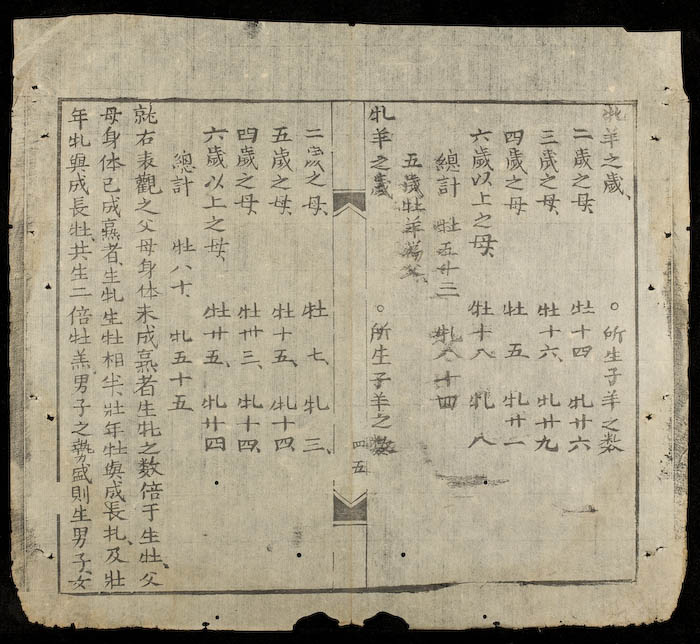 牝羊之歲、 ○所生子羊之数
二歲之母、 牡十四 牝廿六
三歲之母、 牡十六、 牝廿九
四歲之母 牡五 牝廿一
六歲以上之母、 牡十八 牝八
總計 牡五廿三 牝八十四
五歲牡羊為父、
牝羊之歲 ○所生子羊之数
四五
二歲之母、 牡七、 牝三、
五歲之母、 牡十五、 牝十四、
四歲之母、 牡卅三、 牝十四、
六歲以上之母、 牡廿五、 牝廿四
總計 牡八十、 牝五十五
就右表觀之父母身体未成熟者生牝之数倍于生牡、父
母身体已成熟者、生牝生牡相半、壯年牡與成長牝、及壯
年牝與成長牡、共生二倍牡羔男子之勢盛則生男子、女